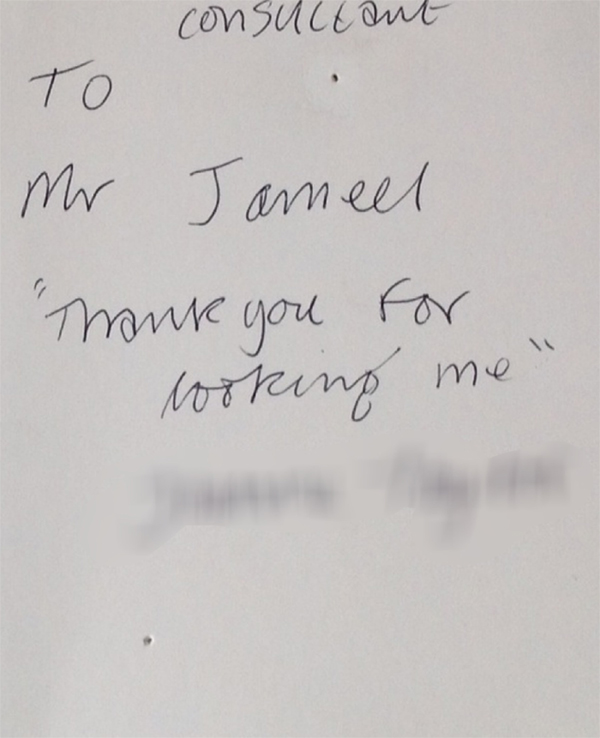 consultant
To
Mr Jameel
"Thank you For
looking me"